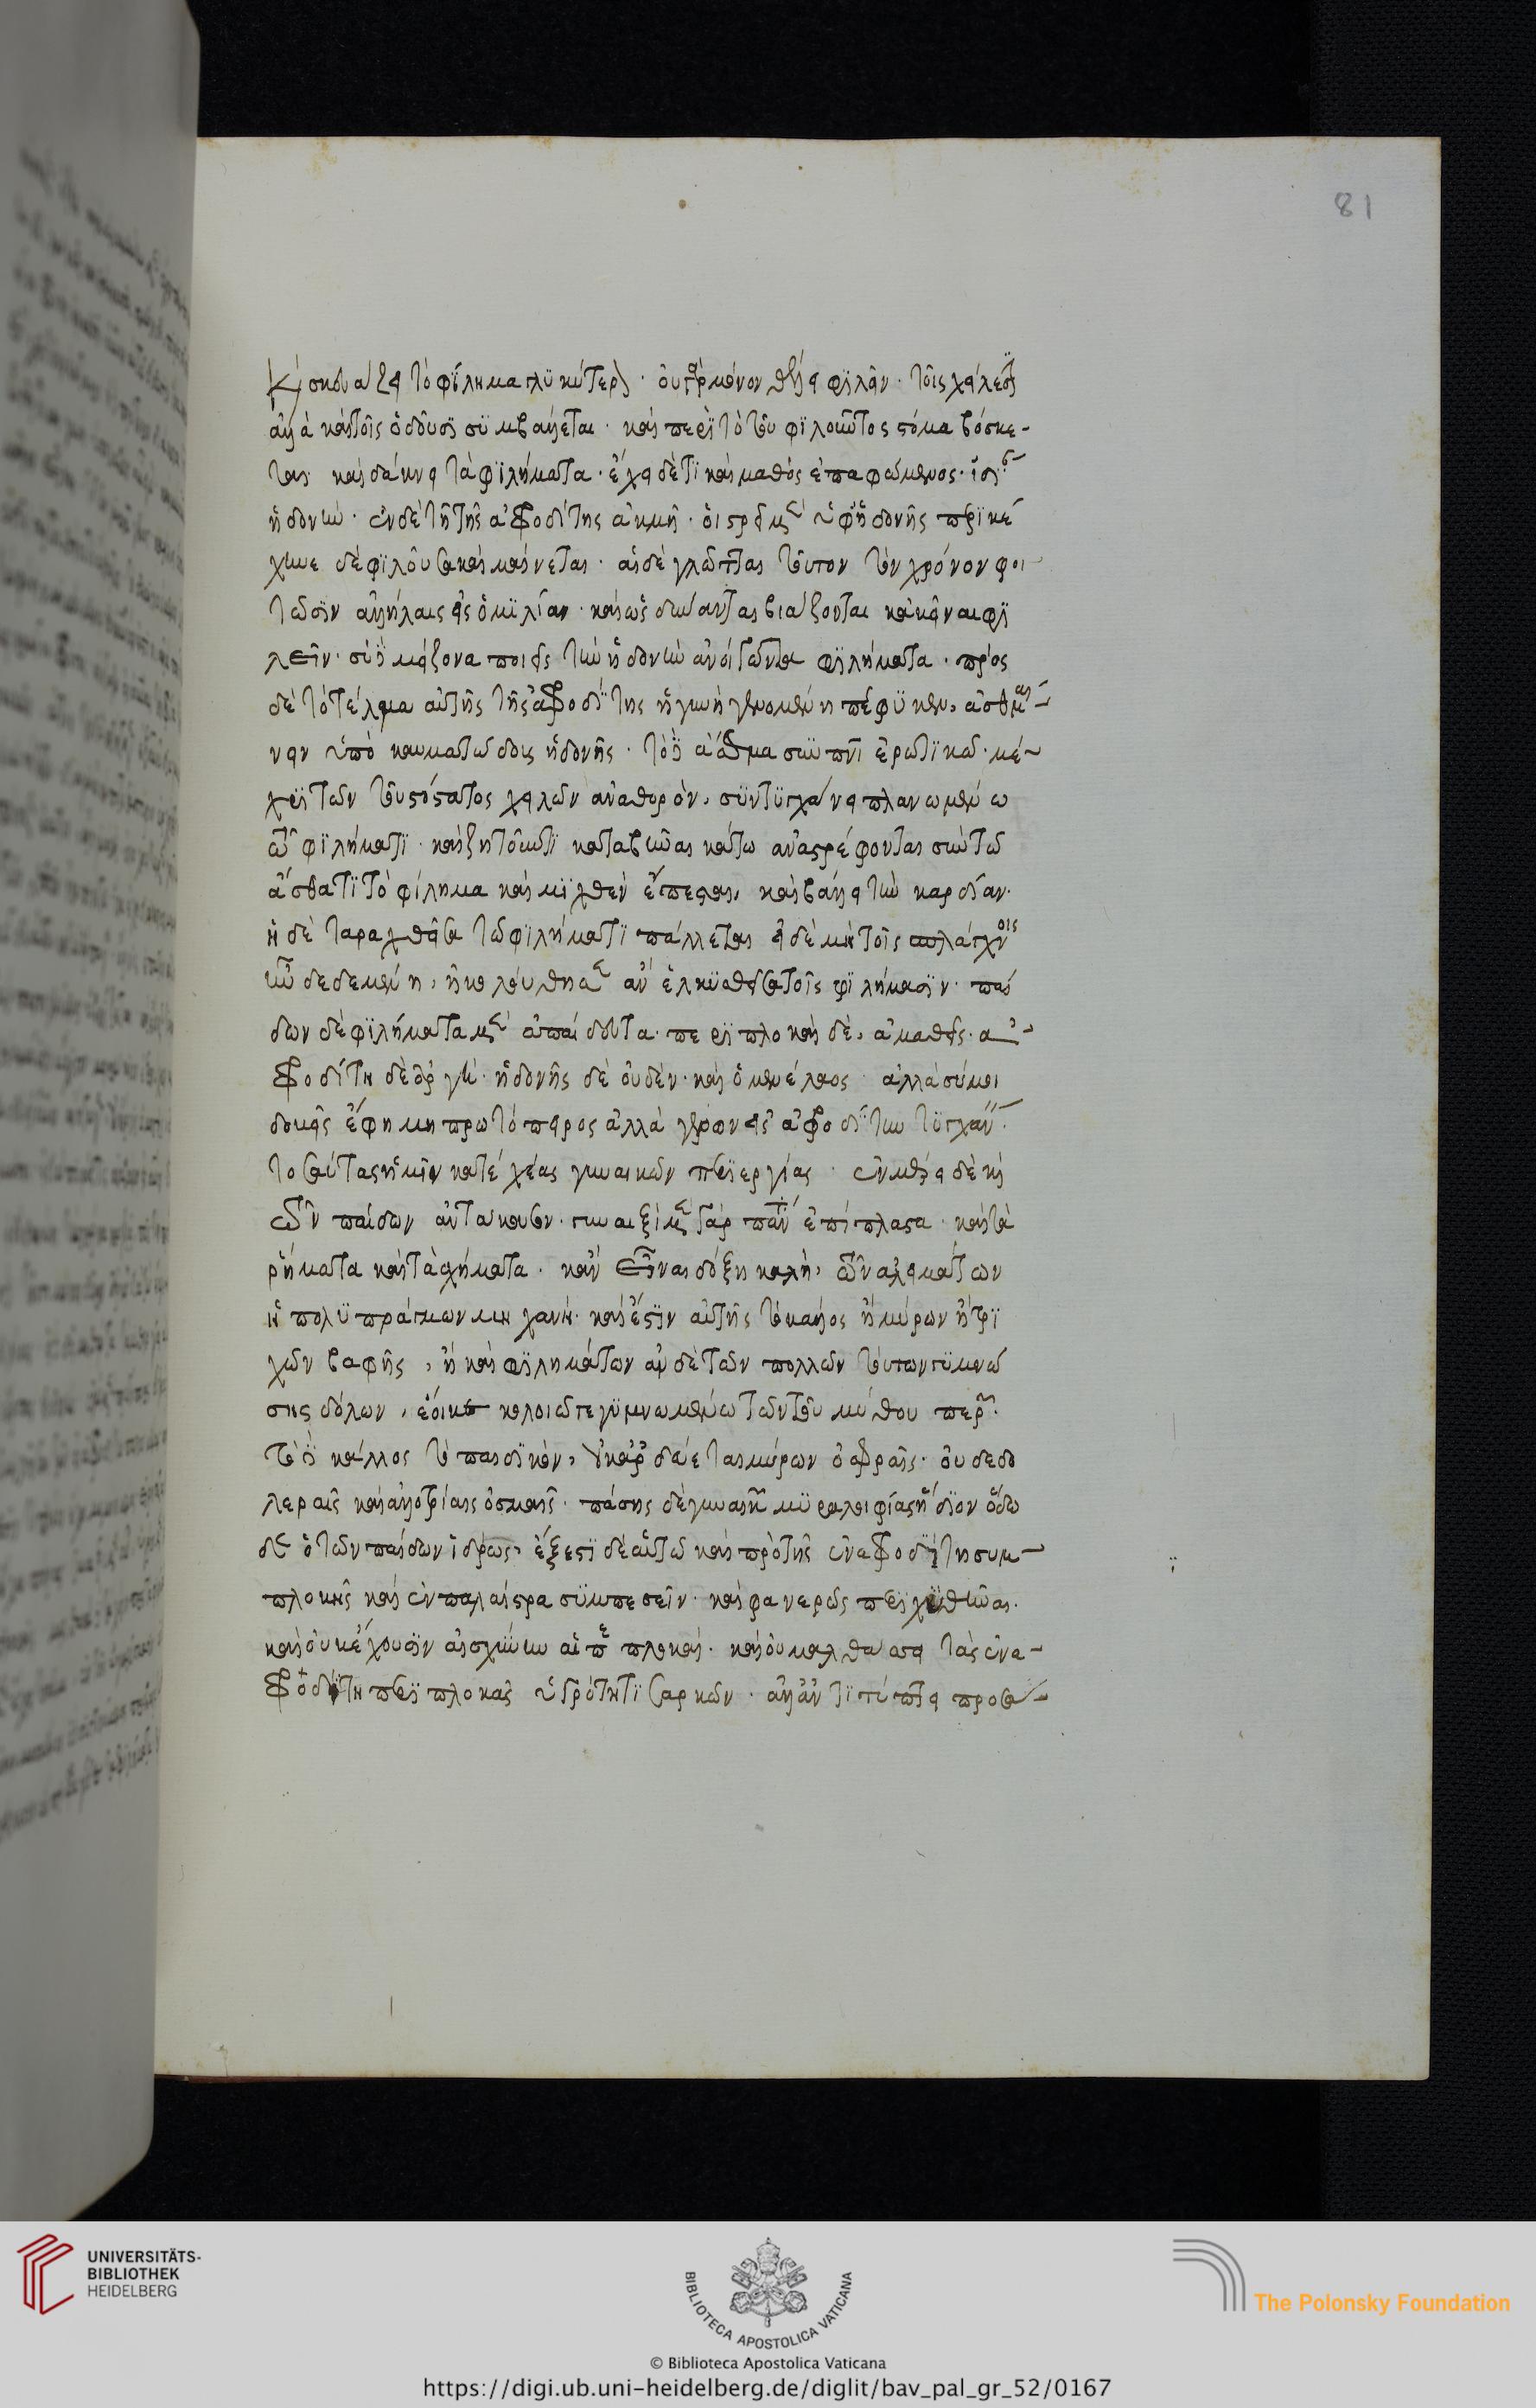 Καὶ σκευάζει τὸ φΐλημα γλϋκύτερον · οὐ γὰρ μόνον θέλει φϊλεῖν · τοῖς χείλεσϊ
ἀλλὰ καὶ τοῖς ὀδοῦσϊ σϋμβάλλεται · καὶ περὶ τὸ τοῦ φϊλοῦντος στόμα βόσκε-
ται καὶ δάκνει τὰ φϊλήματα · ἔχει δὲ τϊ καὶ μασθὸς ἐπαφώμενος · ἰδί
ἡδονὴν · ἐν δὲ τῇ τῆς ἀφροδίτης ἀκμῇ · οἰστρεῖ μὲν ὑφ' ἡδονῆς περϊκέ
χηνε δὲ φϊλοῦσα καὶ μαίνεται · αἱ δὲ γλῶτται τοῦτον τὸν χρόνον φοι
τῶσϊν ἀλλήλαις εἰς ὁμϊλίαν · καὶ ὡς δύνανται βιάζονται κἀκεῖναι φϊ
λεῖν · σὺ δὲ μείζονα ποιεῖς τὴν ἡδονὴν ἀνοίγων τὰ φϊλήματα · πρὸς
δὲ τὸ τέρμα αὐτῆς τῆς ἀφροδΐτης ἡ γυνὴ γενομένη πέφϋκεν, ἀσθμαί-
νειν ὑπὸ καυματώδους ἡδονῆς · τὸ δὲ ἆσθμα σὺν πνι ἐρωτϊκῶ · μέ-
χρϊ τῶν τοῦ στόματος χειλῶν ἀναθορὸν, σϋντϋγχάνει πλανωμένω
τῶ φϊλήματϊ · καὶ ζητοῦντϊ καταβῆναι κάτω ἀναστρέφονται σὺν τῶ
ἄσθματϊ τὸ φίλημα καὶ μϊχθὲν ἕπεται, καὶ βάλλει τὴν καρδίαν ·
ἡ δὲ ταραχθεῖσα τῶ φϊλήματϊ πάλλεται εἰ δὲ μὴ τοῖς σπλάγχνοις
ἦν δεδεμένη, ἠκολούθησεν ἂν ἑλκϋσθεῖσα τοῖς φϊλήμασϊν · παί
δων δὲ φϊλήματα μὲν ἀπαίδευτα · περϊπλοκαὶ δὲ, ἀμαθεῖς · ἀ-
φροδίτη δὲ ἀργή · ἡδονῆς δὲ οὐδέν · καὶ ὁ μενέλαος · ἀλλὰ σύ μοι
δοκεῖς ἔφη μὴ πρωτόπειρος ἀλλὰ γέρων εἰς ἀφροδΐτην τϋγχάν
τοσαύτας ἡμῖν κατέχεας γυναικῶν περϊεργίας · ἐν μέρει δὲ κὴ
τῶν παίδων ἀντάκουσον · γυναιξὶ μὲν γὰρ πάντ ἐπίπλαστα · καὶ τὰ
ῥήματα καὶ τὰ σχήματα · κἂν εἶναι δόξη καλὴ, τῶν ἀλειμμάτων
ἡ πολϋπράγμων μηχανή · καὶ ἔστϊν αὐτῆς τὸ κάλλος ἢ μύρων ἢ τρϊ
χῶν βαφῆς, ἢ καὶ φϊλημάτων ἂν δὲ τῶν πολλῶν τούτων γϋμνώ
σης δόλων, ἔοικε κολοιῶ γεγϋμνωμένω τῶν τοῦ μύθου πτερ ·
τὸ δὲ κάλλος τὸ παιδϊκὸν, οὐκ ἀρδεύεται μύρων ὀσφραῖς · οὐδὲ δο
λεραῖς καὶ ἀλλοτρίαις ὀσμαῖς · πάσης δὲ γυναικῶν μϋραλοιφίας ἥδϊον ὄδω
δε ὁ τῶν παίδων ἱδρώς, ἔξεστϊ δὲ αὐτῶ καὶ πρὸ τῆς ἐν ἀφροδΐτη συμ-
πλοκῆς καὶ ἐν παλαίστρα σϋμπεσεῖν · καὶ φανερῶς περϊχϋθῆναι ·
καὶ οὐκ ἔχουσϊν αἰσχύνην αἱ περιπλοκαί · καὶ οὐ μαλθάσσει τὰς ἐν ἀ-
φροδΐτη περϊπλοκὰς ὑγρότητϊ σαρκῶν · ἀλλ' ἀντϊτύπτει προσ-
81
UNIVERSITÄTS-
BIBLIOTHEK
HEIDELBERG
BIBLIOTECA APOSTOLICA VATICANA
The Polonsky Foundation
© Biblioteca Apostolica Vaticana
https://digi.ub.uni-heidelberg.de/diglit/bav_pal_gr_52/0167